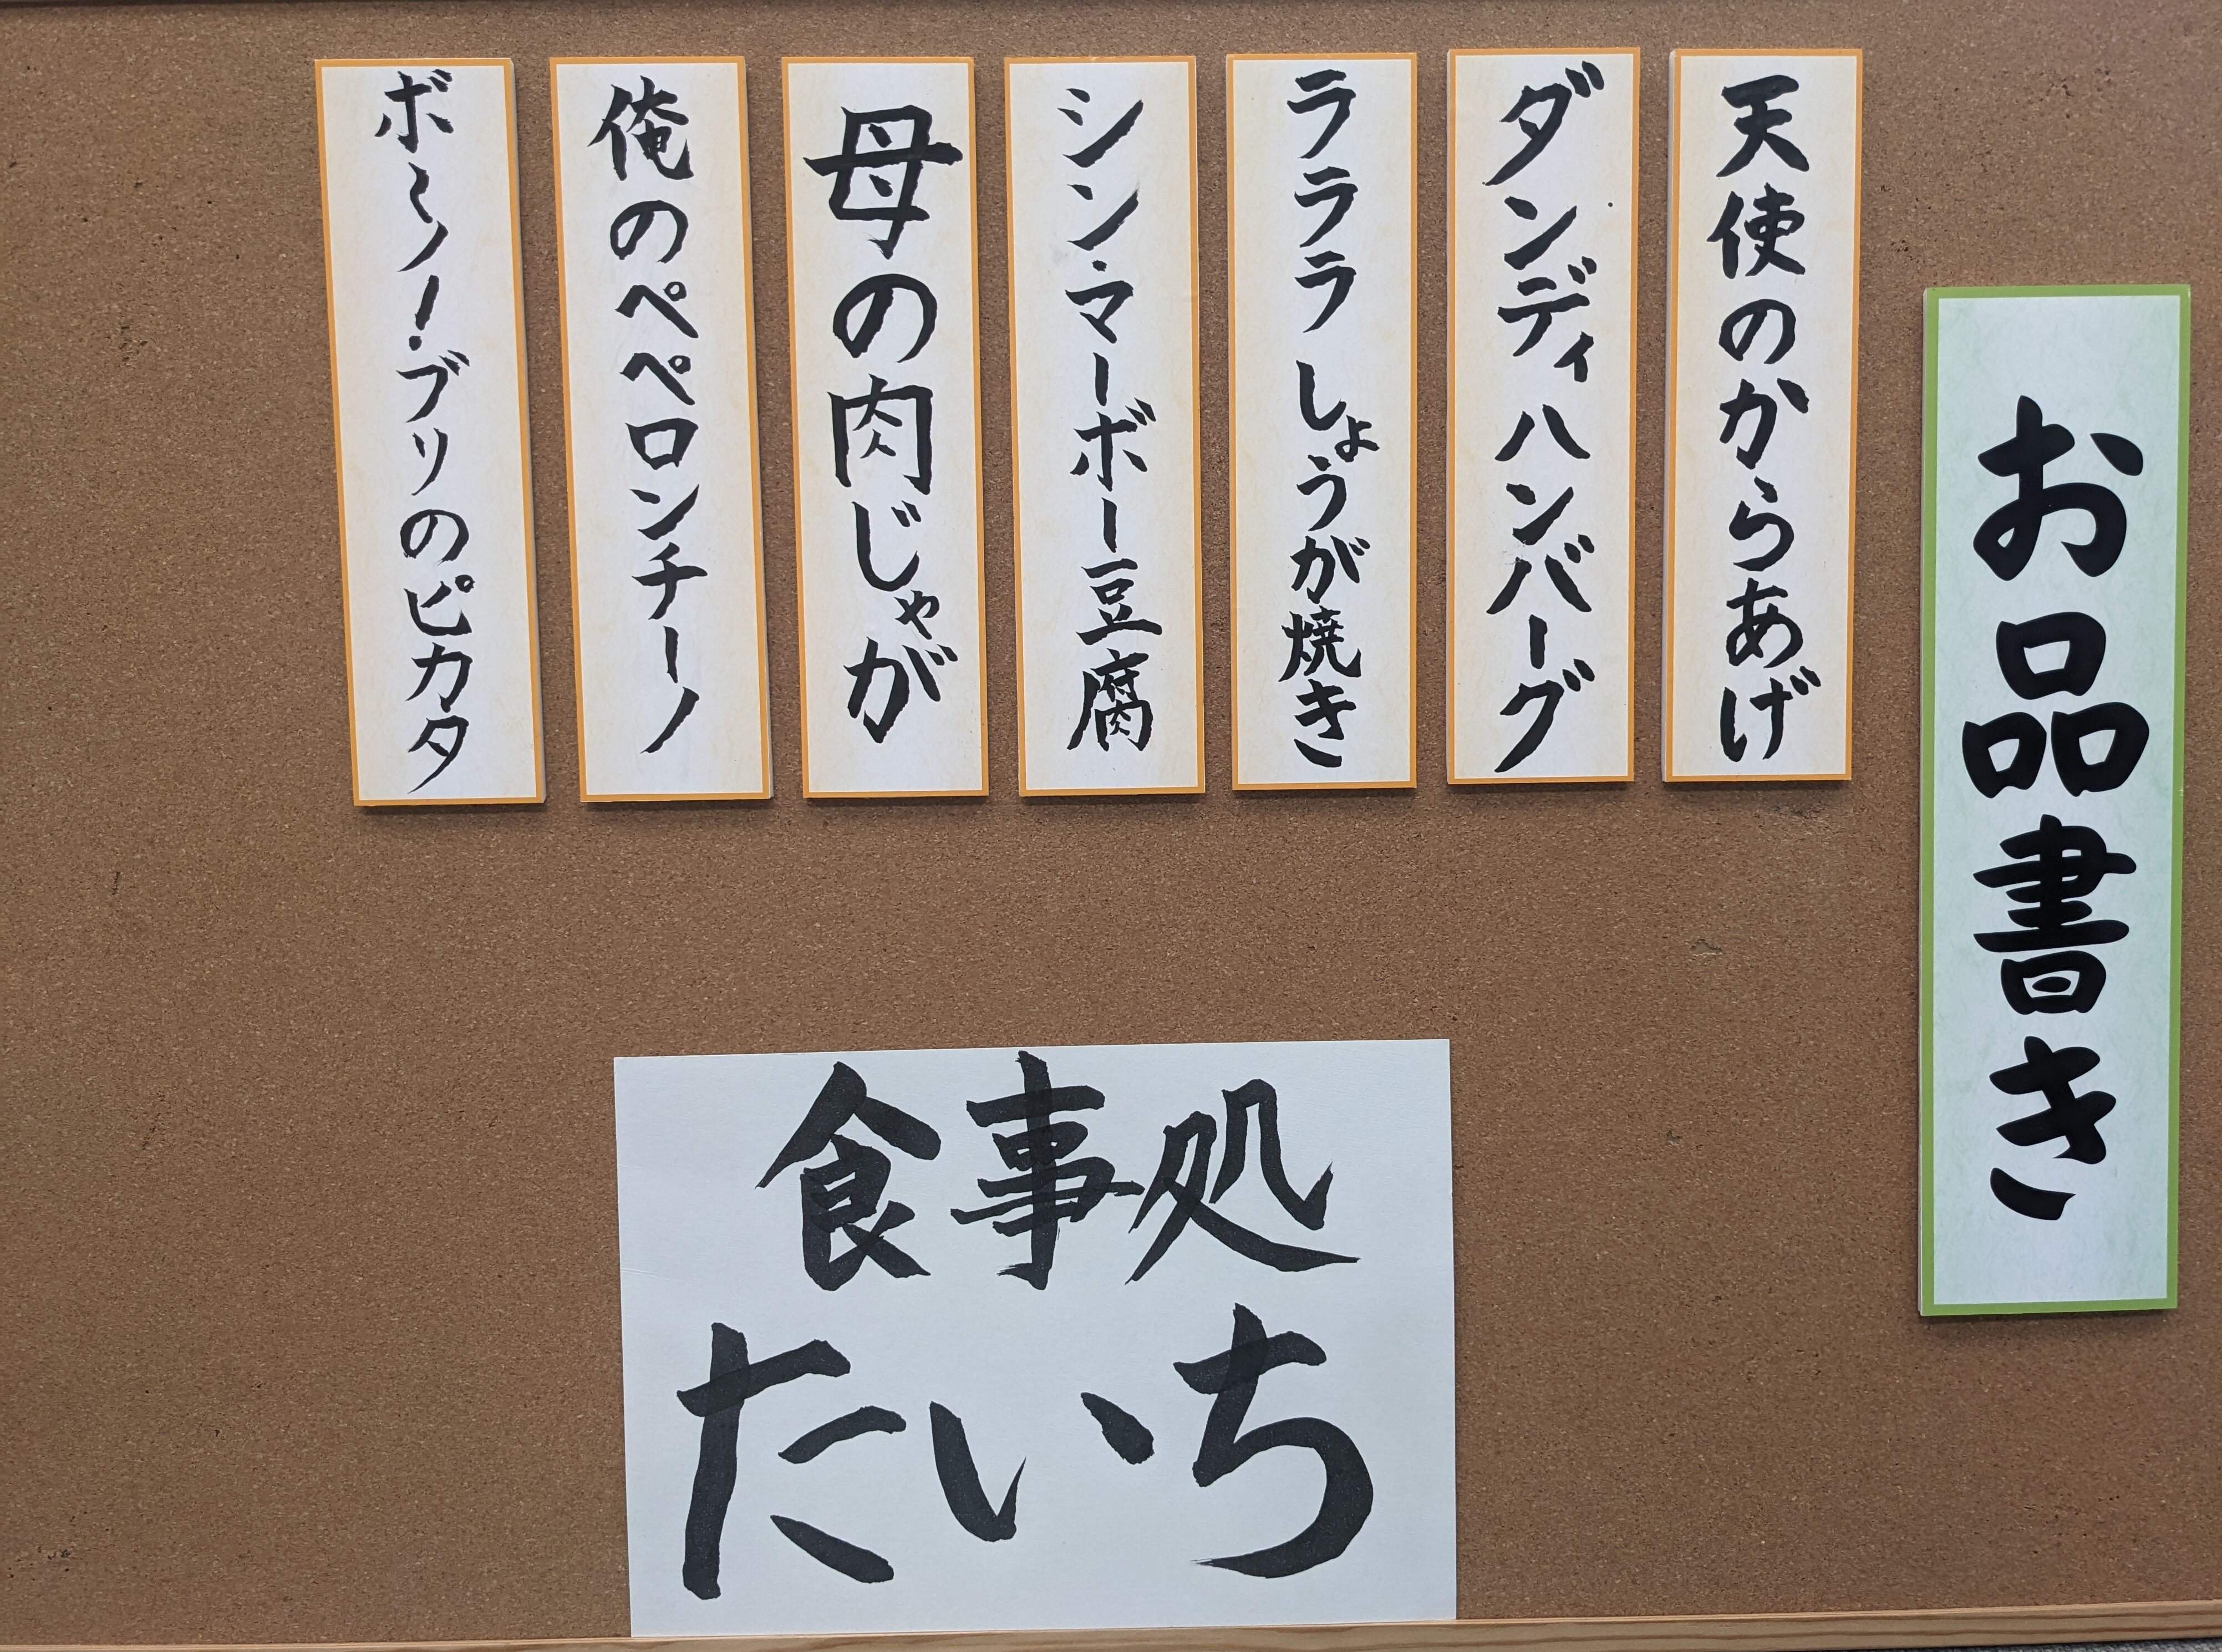 お品書き
天使のからあげ
ダンディハンバーグ
ラララしょうが焼き
シン・マーボー豆腐
母の肉じゃが
俺のペペロンチーノ
ボーノー・ブリのピカタ
食事処
たいち